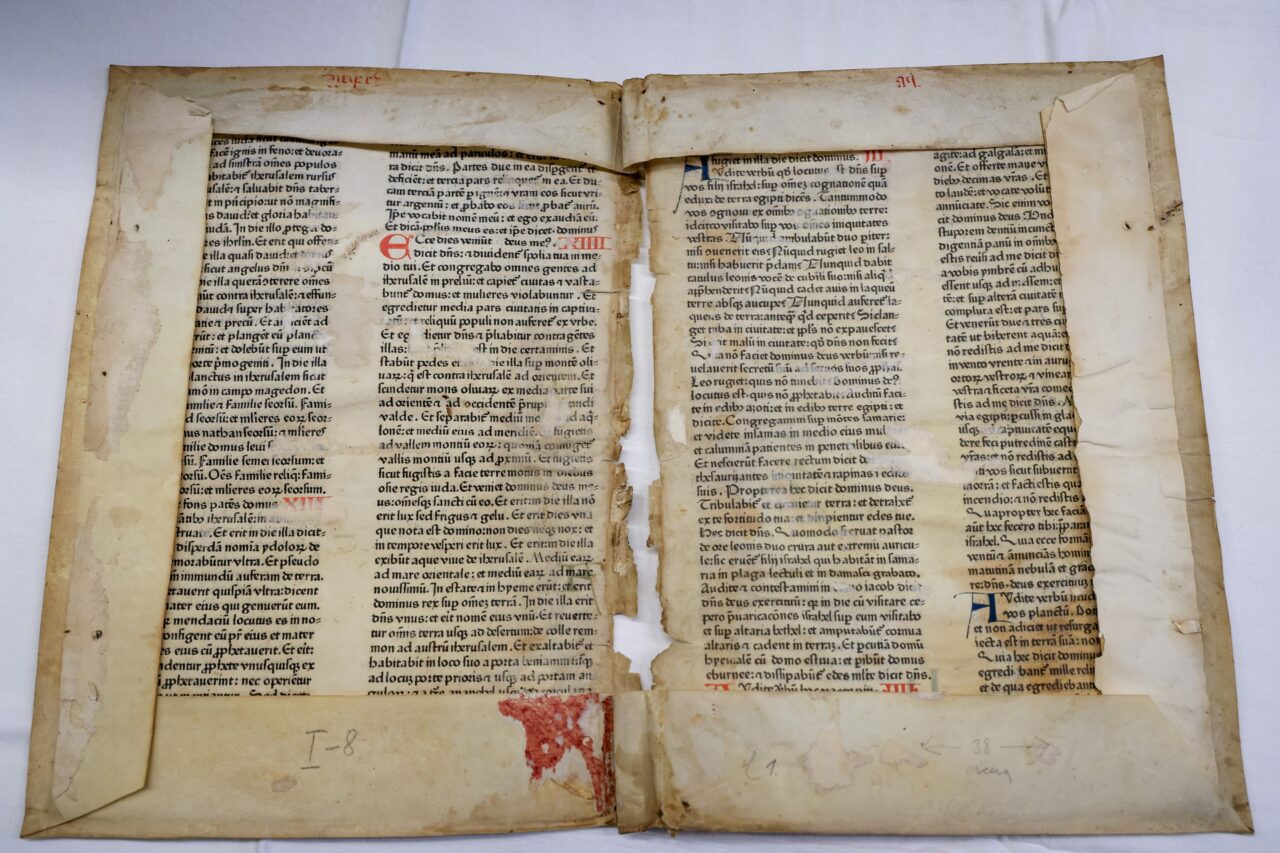 facē ignis in feno: et deuora=
ad sinistrā om̄es populos
habitabit iherusalem rursus
salē: & saluabit dn̄s taber=
t in principio: ut nō magnifi=
us dauid: et gloria habitan=
iudā. In die illo proteget dn̄s
Et erit qui offen=
e illa quasi dauid: et domus
sicut angelus dn̄i
die illa querā terere omēs
aūt contra iherusalē: & effun=
dauid & super habitatores
atie & precū. Et aspiciēt ad
rūt: et plangēt eū planc
mitū: et dolebūt sup eum ut
orte primogeniti. In die illa
planctus in iherusalem sicut
mōn in campo magedon. Et
milie & familie seorsū. Fami=
d seorsū: et mlieres eorū seor=
us nathan seorsū: & mlieres
milie domus leui
sū. Familie semei seorsum: et
rsū. Om̄s familie reliq̄: fami=
rsū: et mlieres eorū seorsum.
fons patēs domui XIII
Et erit in die illa dicit=
disperdā nomīa ydolorū de
morabūtur vltra. Et pseudo
m inmundū auferam de terra.
etauerit quispiā vltra: dicent
ater eius qui genuerūt eum.
mendaciū locutus es in no=
onfigent eū pr̄ eius et mater
s eius cū prophetauerit. Et erit:
dentur prophete vnusquisque ex
prophetauerint: nec operietur
manū meā ad paruulos: et erūt
ra dicit dn̄s. Partes due in ea dispergent &
deficiēt: et tercia pars relinquetur in ea. Et du=
cam terciā partē p ignē: & vram eos sicut vri=
tur argentū: et probabo eos sicut probat aurū.
Ipse vocabit nomē meū: et ego exaudiā eū.
Et dicā: populus meus es: et ipse dicet: dominus
Ecce dies veniūt deus me9. XIIII
dicit dn̄s: & diuident spolia tua in me=
dio tui. Et congregabo omnes gentes ad
iherusalem in preliū: et capiet ciuitas & vasta=
bunt domus: et mulieres violabuntur. Et
egredietur media pars ciuitatis in captiui=
reliquū populi non auferet ex vrbe.
Et eg dietur dn̄s & preliabitur contra gētes
illas: est in die certaminis. Et
stabūt pedes eius in die illa sup montē oli=
uarū: q̄ est contra iherusalē ad orientem. Et
scindetur mons oliuarū ex media parte sui
ad orientē & ad occidentē prupt grandi
valde. Et separabit mediū
lonē: et mediū eius ad meridiē. Et fugietis
ad vallem montiū eorū: quoniā coniūget
vallis montiū usque ad proximū. Et fugietis
sicut fugistis a facie terre motus in diebus
osie regis iuda. Et veniet dominus deus me=
us: omesque sancti cū eo. Et erit: in die illa nō
erit lux sed frigus & gelu. Et erit dies vna
que nota est domino: non dies neque nox: et
in tempore vesperi erit lux. Et erit: in die illa
exibūt aque viue de iherusalē. Mediū earū
ad mare orientale: et mediū earū ad mare
nouissimū. In estate & in hyeme erūt: et erit
dominus rex sup omēz terrā. In die illa erit
dn̄s vnus: et erit nomē eius vnū. Et reuerte=
tur oīms terra usque ad desertum: de colle rem=
mon ad austrū iherusalem. Et exaltabit et
habitabit in loco suo a porta beniamin usque
ad locū porte prioris & usque ad portam an
fugiet in illa die dicit dominus. III
Audite verbū qd̄ locutus est dn̄s sup
vos filij israhel: sup omēz cognationē quā
eduxi de terra egipti dicēs. Tantummodo
vos ognoui ex omībus cognationibus terre:
idcirco visitabo sup vos omēs iniquitates
vestras. Nūquid ambulabūt duo pariter:
nisi quenerit eis? Nūquid rugiet leo in sal=
tu: nisi habuerit predam? Nunquid dabit
catulus leonis vocē de cubili suo: nisi aliquid
apprehenderit? Nūquid cadet auis in laqueū
terre absque aucupe? Nunquid auferet la=
queus de terra: anteq̄ qd̄ ceperit? Si clan=
get tuba in ciuitate: et populus nō expauescet?
Si erit malū in ciuitate: qd̄ dn̄s non fecit?
Quia nō faciet dominus deus verbū: nisi re=
uelauerit secretū suū ad seruos suos prophetas.
Leo rugiet: quis nō timebit? Dominus de9
locutus est: quis nō prophetabit? Auditū faci=
te in edibus azoti: et in edibus terre egipti: et
dicite. Congregamini sup mōtes samarie:
et videte insanias in medio eius mul
et calumniā patientes in penetralibus eius
Et nescierūt facere rectum dicit dominus
thesaurizantes iniquitatē & rapinas i edibus
suis. Propterea hec dicit dominus deus.
Tribulabit & circuietur terra: et detrahet
ex te fortitudo tua: et diripientur edes tue.
Hec dicit dn̄s. Quomodo si eruat pastor
de ore leonis duo crura aut extremū auricu=
le: sic eruent filij israhel qui habitāt in sama=
ria in plaga lectuli et in damasci grabato.
Audite & contestamini in domo iacob dicit
dn̄s deus exercituū: quia in die cū visitare ce=
pero preuaricationēs israhel sup eum visitabo
et sup altaria bethel: et amputabūt cornua
altaris & cadent in terrā. Et pcutiā domū
hyemalē cū domo estiua: et pibūt domus
eburnee: & dissipabūt edes mlte dicit dn̄s.
Audite verbū hoc vacce pin= IIII
agite: ad galgala: et m
Et offerte mane v
diebus decimas vrās. Et
to laudē: et vocate volūt
annūciate. Sic enim vo
cit dominus deus. Vnd
stuporem dentiū in cunct
digentiā panū in omībus
estis reuersi ad me dicit d
a vobis ymbrē cū adhu
essent usque ad messem: et
tē: et sup alterā ciuitatē n
compluta est: et pars su
Et venerūt due & tres ciu
tate ut biberent aquā: et
nō redistis ad me dicit d
in vento vrente & in aurug
ortorum vestrorum & vinear
vestra & ficeta vr̄a comed
stis ad me dicit dn̄s. M
via egipti: pcussi in glad
usque ad captiuitatē equo
dere feci putredinē castro
vrās: et nō redistis ad
vos sicut subuertit
morrā: et facti estis qua
incendio: & nō redistis
Quapropter hec faciā
aūt hec fecero tibi: prepara
israhel. Quia ecce formā
ventū & annūciās homin
matutinā nebulā et grad
re: dn̄s deus exercituū
Audite verbū istud
vos planctū. Dom
et non adiciet ut resurga
iecta est in terrā suā: non
Quia hec dicit dominus
egrediebant mille reli
et de qua egrediebant
I-8
l 1.
38
circa